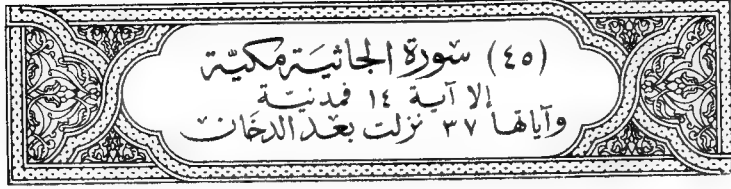 (٤٥) سُورَة الجاثيَة مَكيّة
إلا آية ١٤ فمدنيّة
وآياتها ٣٧ نزلت بعد الدخَان